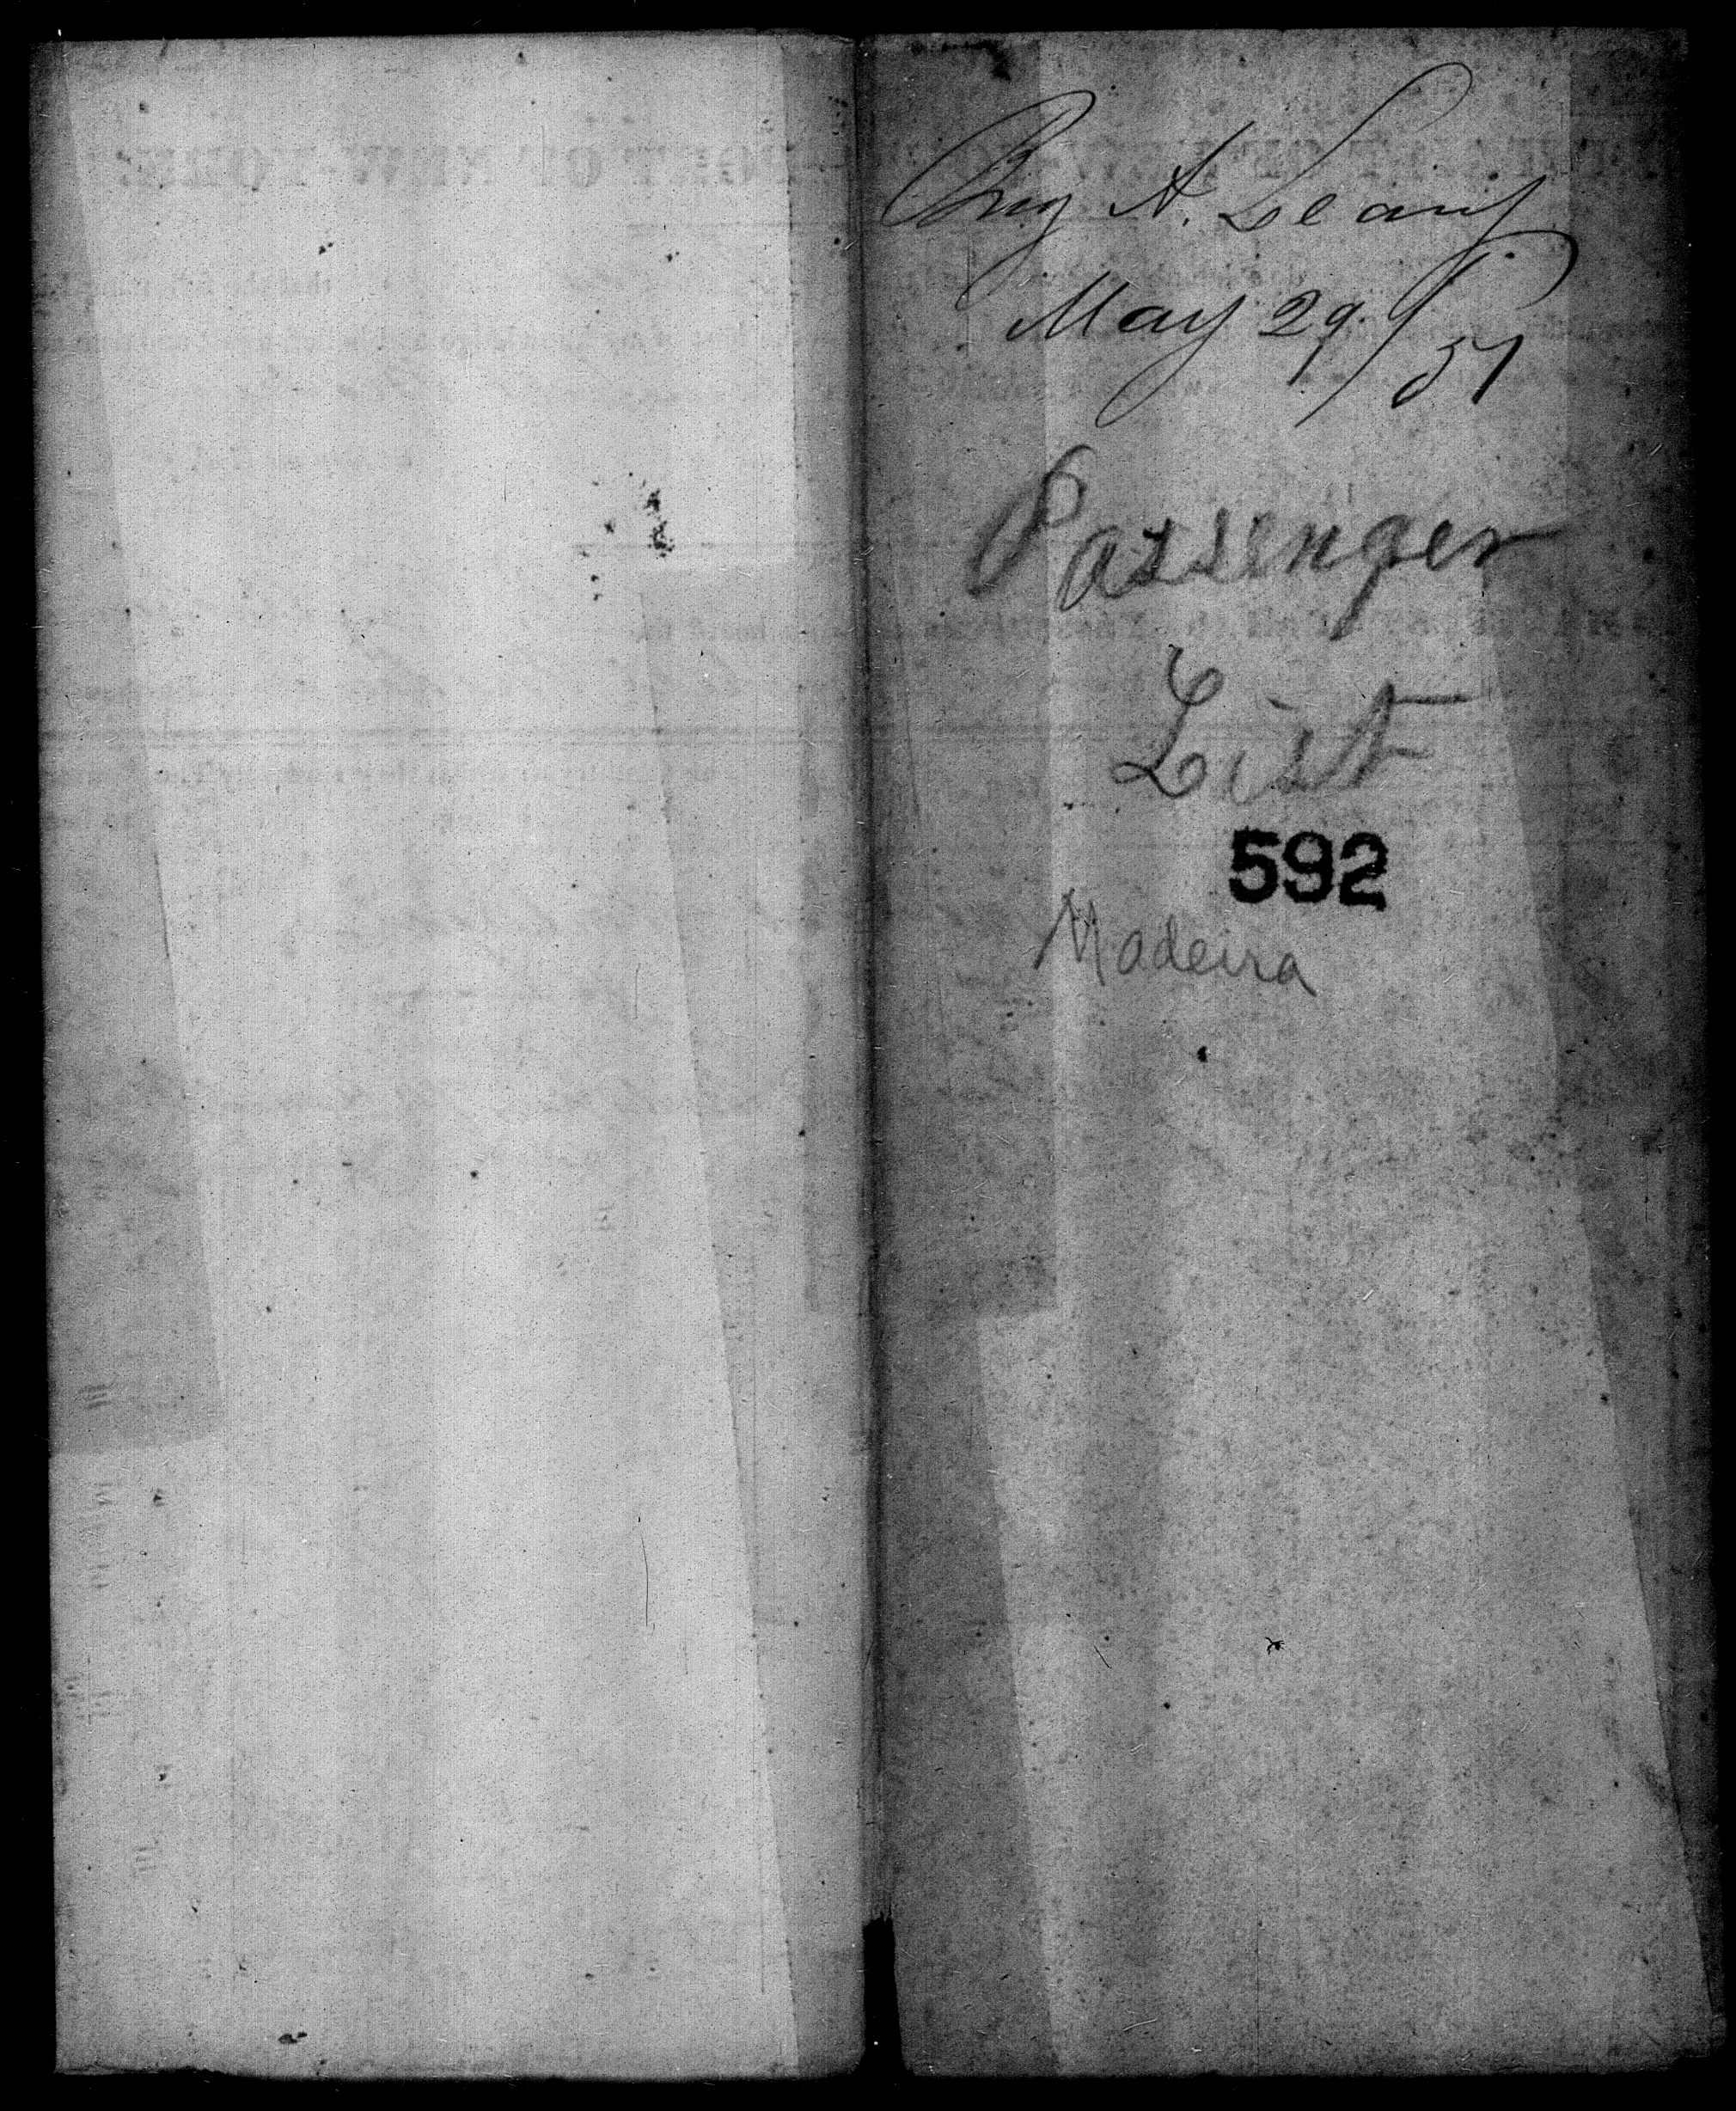 Brig A. Leary
May 29./51
Passenger
List
592
Madeira